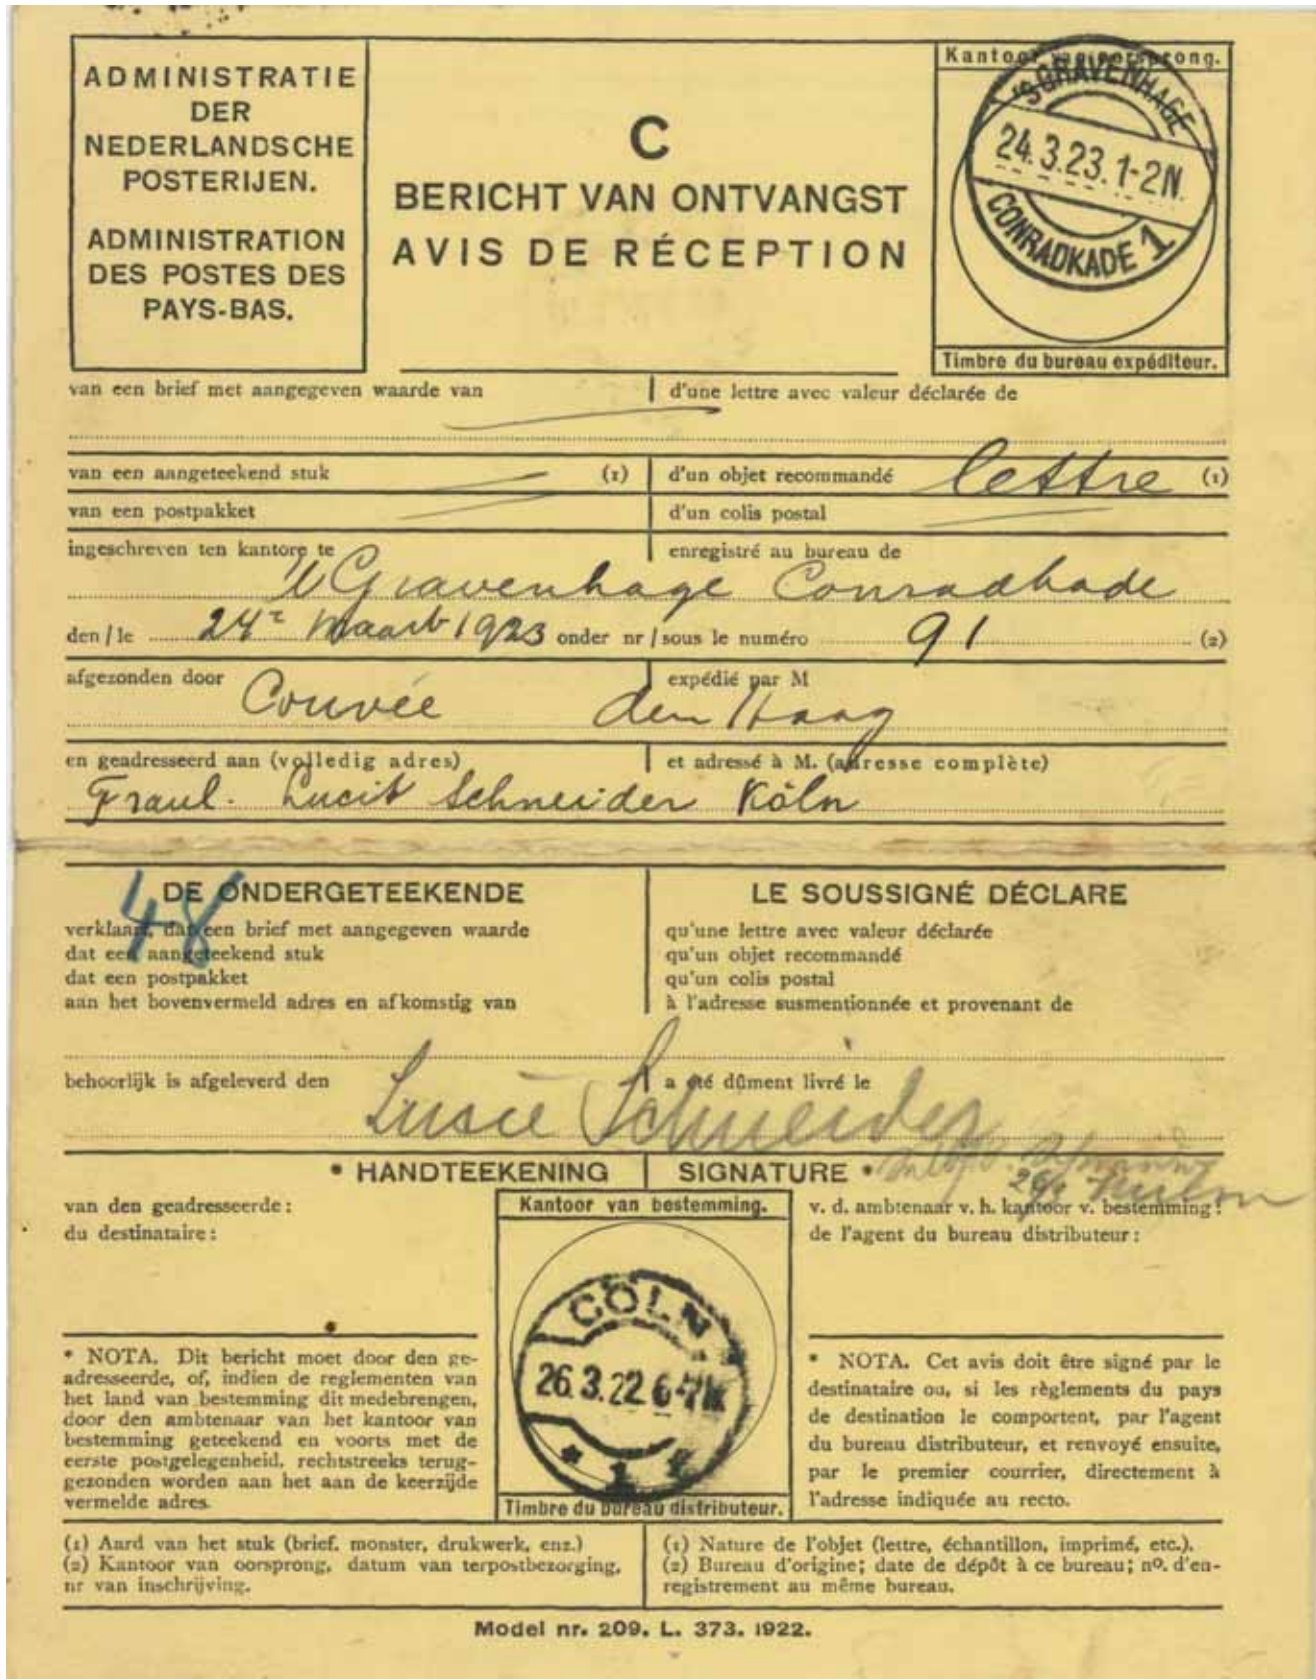 ADMINISTRATIE
DER
NEDERLANDSCHE
POSTERIJEN.
ADMINISTRATION
DES POSTES DES
PAYS-BAS.
C
BERICHT VAN ONTVANGST
AVIS DE RÉCEPTION
Kantoor van oorsprong.
'SGRAVENHAGE
24.3.23.1-2N.
CONRADKADE 1
Timbre du bureau expéditeur.
van een brief met aangegeven waarde van
d'une lettre avec valeur déclarée de
van een aangeteekend stuk (1)
d'un objet recommandé lettre (1)
van een postpakket
d'un colis postal
ingeschreven ten kantore te
enregistré au bureau de
's Gravenhage Conradkade
den / le 24e Maart 1923 onder nr / sous le numéro 91 (2)
afgezonden door
expédié par M
Couvée den Haag
en geadresseerd aan (volledig adres)
et adressé à M. (adresse complète)
Fraul. Lucie Schneider Köln
48
DE ONDERGETEEKENDE
verklaart, dat een brief met aangegeven waarde
dat een aangeteekend stuk
dat een postpakket
aan het bovenvermeld adres en afkomstig van
LE SOUSSIGNÉ DÉCLARE
qu'une lettre avec valeur déclarée
qu'un objet recommandé
qu'un colis postal
à l'adresse susmentionnée et provenant de
behoorlijk is afgeleverd den
a été dûment livré le
Lusie Schneider
* HANDTEEKENING
SIGNATURE *
van den geadresseerde:
du destinataire:
Kantoor van bestemming.
CÖLN
26.3.22 6-7N
* 1 *
Timbre du bureau distributeur.
v. d. ambtenaar v. h. kantoor v. bestemming:
de l'agent du bureau distributeur:
* NOTA. Dit bericht moet door den ge-
adresseerde, of, indien de reglementen van
het land van bestemming dit medebrengen,
door den ambtenaar van het kantoor van
bestemming geteekend en voorts met de
eerste postgelegenheid, rechtstreeks terug-
gezonden worden aan het aan de keerzijde
vermelde adres.
* NOTA. Cet avis doit être signé par le
destinataire ou, si les règlements du pays
de destination le comportent, par l'agent
du bureau distributeur, et renvoyé ensuite,
par le premier courrier, directement à
l'adresse indiquée au recto.
(1) Aard van het stuk (brief, monster, drukwerk, enz.)
(2) Kantoor van oorsprong, datum van terpostbezorging,
nr van inschrijving.
(1) Nature de l'objet (lettre, échantillon, imprimé, etc.).
(2) Bureau d'origine; date de dépôt à ce bureau; no. d'en-
registrement au même bureau.
Model nr. 209. L. 373. 1922.